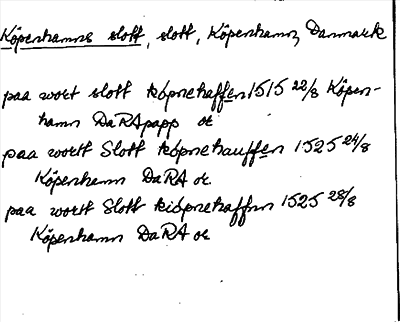 Köpenhamns slott, slott, Köpenhamn, Danmark
paa wort slott kôpnehaffen 1515 22/8 Köpen-
hamn DaRA papp or
paa wortt Slott kôpnehauffen 1525 24/8
Köpenhamn DaRA or.
paa wortt Slott kiôpnehaffnn 1525 28/8
Köpenhamn DaRA or